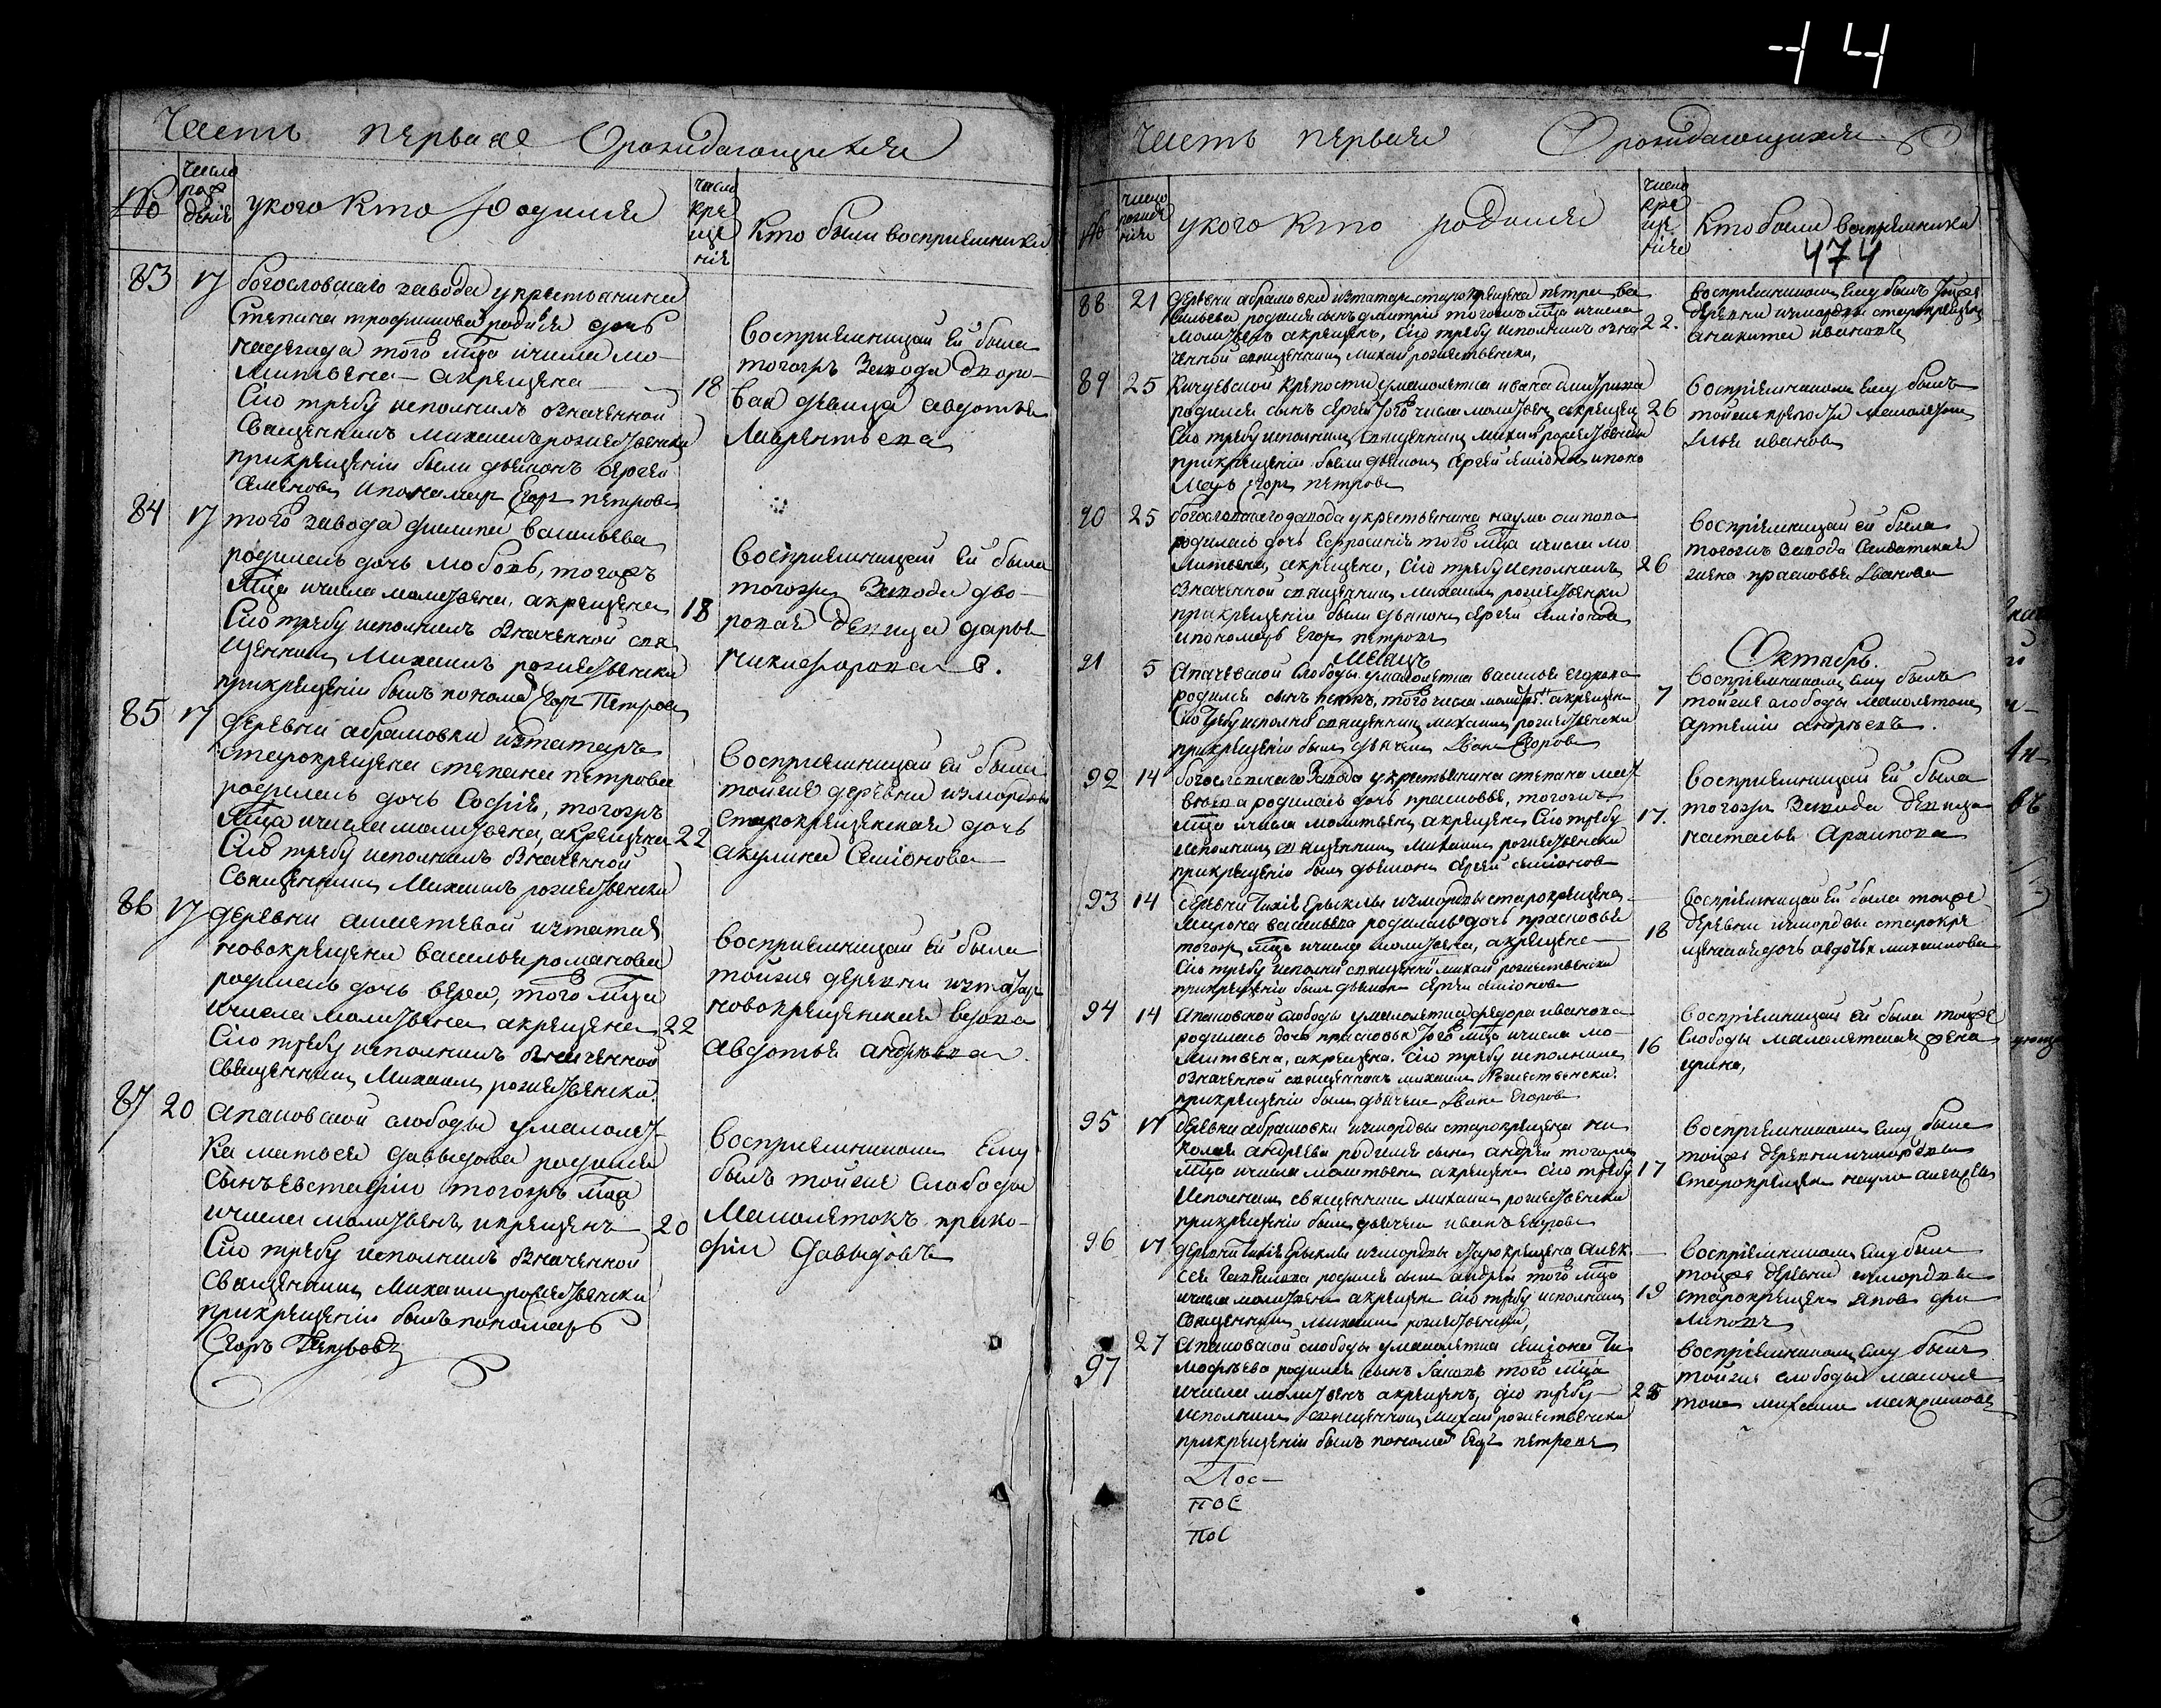 44
Часть первая Ораждающихся
№
число рож дения
укого кто родился
число кре ще ния
кто были восприемники
83 17
богословскаго завода укрестьянина
Степана трофимова родися дочь
надежда того мца ичисла мо-
литвена акрещена 18
Сию требу исполнилъ означенной
Священникъ михаилъ рожественски
прикрещении были дьяконъ сергеи
семенов ипономарь Егоръ петровъ
восприемницаи ей была
тогожъ завода дворо-
вая девица авдотья
Лаврентьева
84 17
того завода филипа васильева
родилась дочь любовь, тогожъ
мца ичисла молитвена, акрещена 18
Сию требу исполнилъ означенной свя
щенникъ Михаилъ рожественски
прикрещении былъ пономарь Егоръ Петровъ
восприемницаи ей была
тогожъ завода дво-
ровая девица дарья
никифорова
85 17
деревни абрамовки изтатаръ
старокрещена степана петрова
родилась дочь София, тогожъ
мца ичисла молитвена, акрещена 22
Сию требу исполнилъ означенной
Священникъ Михаилъ рожественски
восприемницаи ей была
тойже деревни измордвы
старокрещенская дочь
акулина Симионова
86 17
деревни ахметевой изтатаръ
новокрещена василья романова
родилась дочь вера, того мца
ичисла молитвена акрещена 22
Сию требу исполнилъ означенной
Священникъ Михаилъ рожественски
восприемницаи ей была
тойже деревни изтатаръ
новокрещенская вдова
авдотья андреева
87 20
апаковской слободы умалолет-
ка матвея давыдова родился
сынъ евстафий тогожъ мца
ичисла молитвенъ икрещенъ 20
Сию требу исполнилъ означенной
Священникъ Михаилъ рожественски
прикрещении былъ пономарь
Егоръ Петровъ
восприемникомъ ему
былъ тойже слободы
малолетокъ проко-
фии давыдовъ
часть первая Ораждающихся
№
число рожде ния
укого кто родился
число кре ще ния
кто были восприемники
474
88 21
деревни абрамовки изтатаръ старокрещена петра ва
сильева родился сынъ дмитрий тогожъ мца ичисла
молитвенъ акрещенъ, Сию требу исполнилъ озна 22.
ченной священникъ михаилъ рожественски,
восприемникомъ ему былъ тойже
деревни измордвы старокрещенъ
никита ивановъ
89 25
Кичуевской крепости умалолетка ивана
родился сынъ сергей того числа молитвенъ акрещенъ 26
Сию требу исполнилъ священникъ михаилъ рожественски
прикрещении были дьяконъ сергей симионовъ ипоно
марь Егоръ петровъ
восприемникомъ ему былъ
тойже крепости малолетокъ
илья ивановъ
90 25
богословскаго завода укрестьянина наума осипова
родилась дочь Ефросиния того мца ичисла мо
литвена, акрещена, Сию требу исполнилъ 26
означенной священникъ михаилъ рожественски
прикрещении были дьяконъ сергей симионовъ
ипономарь Егоръ петровъ
восприемницаи ей была
тогожъ завода салдатская
жена прасковья Иванова
Месяцъ Октябрь.
91 5
апачевской слободы умалолетка василья Егорова
родился сынъ петръ, того числа молитвенъ акрещенъ 7
Сию требу исполнилъ священникъ михаилъ рожественски
прикрещении былъ дьячекъ Иванъ Егоровъ
восприемникомъ ему былъ
тойже слободы малолетокъ
артемий андреевъ.
92 14
богословскаго завода укрестьянина степана мат
веева родилась дочь прасковья, тогожъ
мца ичисла молитвена, акрещена Сию требу 17.
исполнилъ священникъ михаилъ рожественски
прикрещении былъ дьяконъ сергей симионовъ
восприемницаи ей была
тогожъ завода девица
наталья Архипова
93 14
деревни ерыклы измордвы старокрещена
мирона васильева родилась дочь прасковья
тогожъ мца ичисла молитвена, акрещена 18
Сию требу исполнилъ священникъ михаилъ рожественски
прикрещении былъ дьяконъ сергей симионовъ
восприемницаи ей была тойже
деревни измордвы старокре
щенская дочь авдотья михаилова
94 14
апаковской слободы умалолетка федора иванова
родилась дочь прасковья того мца ичисла мо-
литвена, акрещена. Сию требу исполнилъ 16
означенной священникъ михаилъ Рожественски.
прикрещении былъ дьячекъ Иванъ Егоровъ
восприемницаи ей была тойже
слободы малолетская жена
ирина,
95 17
деревни абрамовки измордвы старокрещена ни
колая андреева родился сынъ андрей тогожъ
мца ичисла молитвенъ акрещенъ Сию требу 17
исполнилъ священникъ михаилъ рожественски
прикрещении былъ дьячекъ иванъ Егоровъ
восприемникомъ ему былъ
тойже деревни измордвы
старокрещенъ наумъ
96 17
деревни ерыклы измордвы старокрещена алек
сея родился сынъ андрей того мца
ичисла молитвенъ акрещенъ Сию требу исполнилъ 19
Священникъ михаилъ рожественски,
восприемникомъ ему былъ
тойже деревни измордвы
старокрещенъ яковъ фи
липовъ
97 27
апаковской слободы умалолетка симиона ти
мофеева родился сынъ иаковъ того мца
ичисла молитвенъ акрещенъ, Сию требу 28
исполнилъ священникъ михаилъ рожественски
прикрещении былъ пономарь Егоръ петровъ
восприемникомъ ему былъ
тойже слободы малоле
токъ михаила максимовъ
Пос-
пос
пос